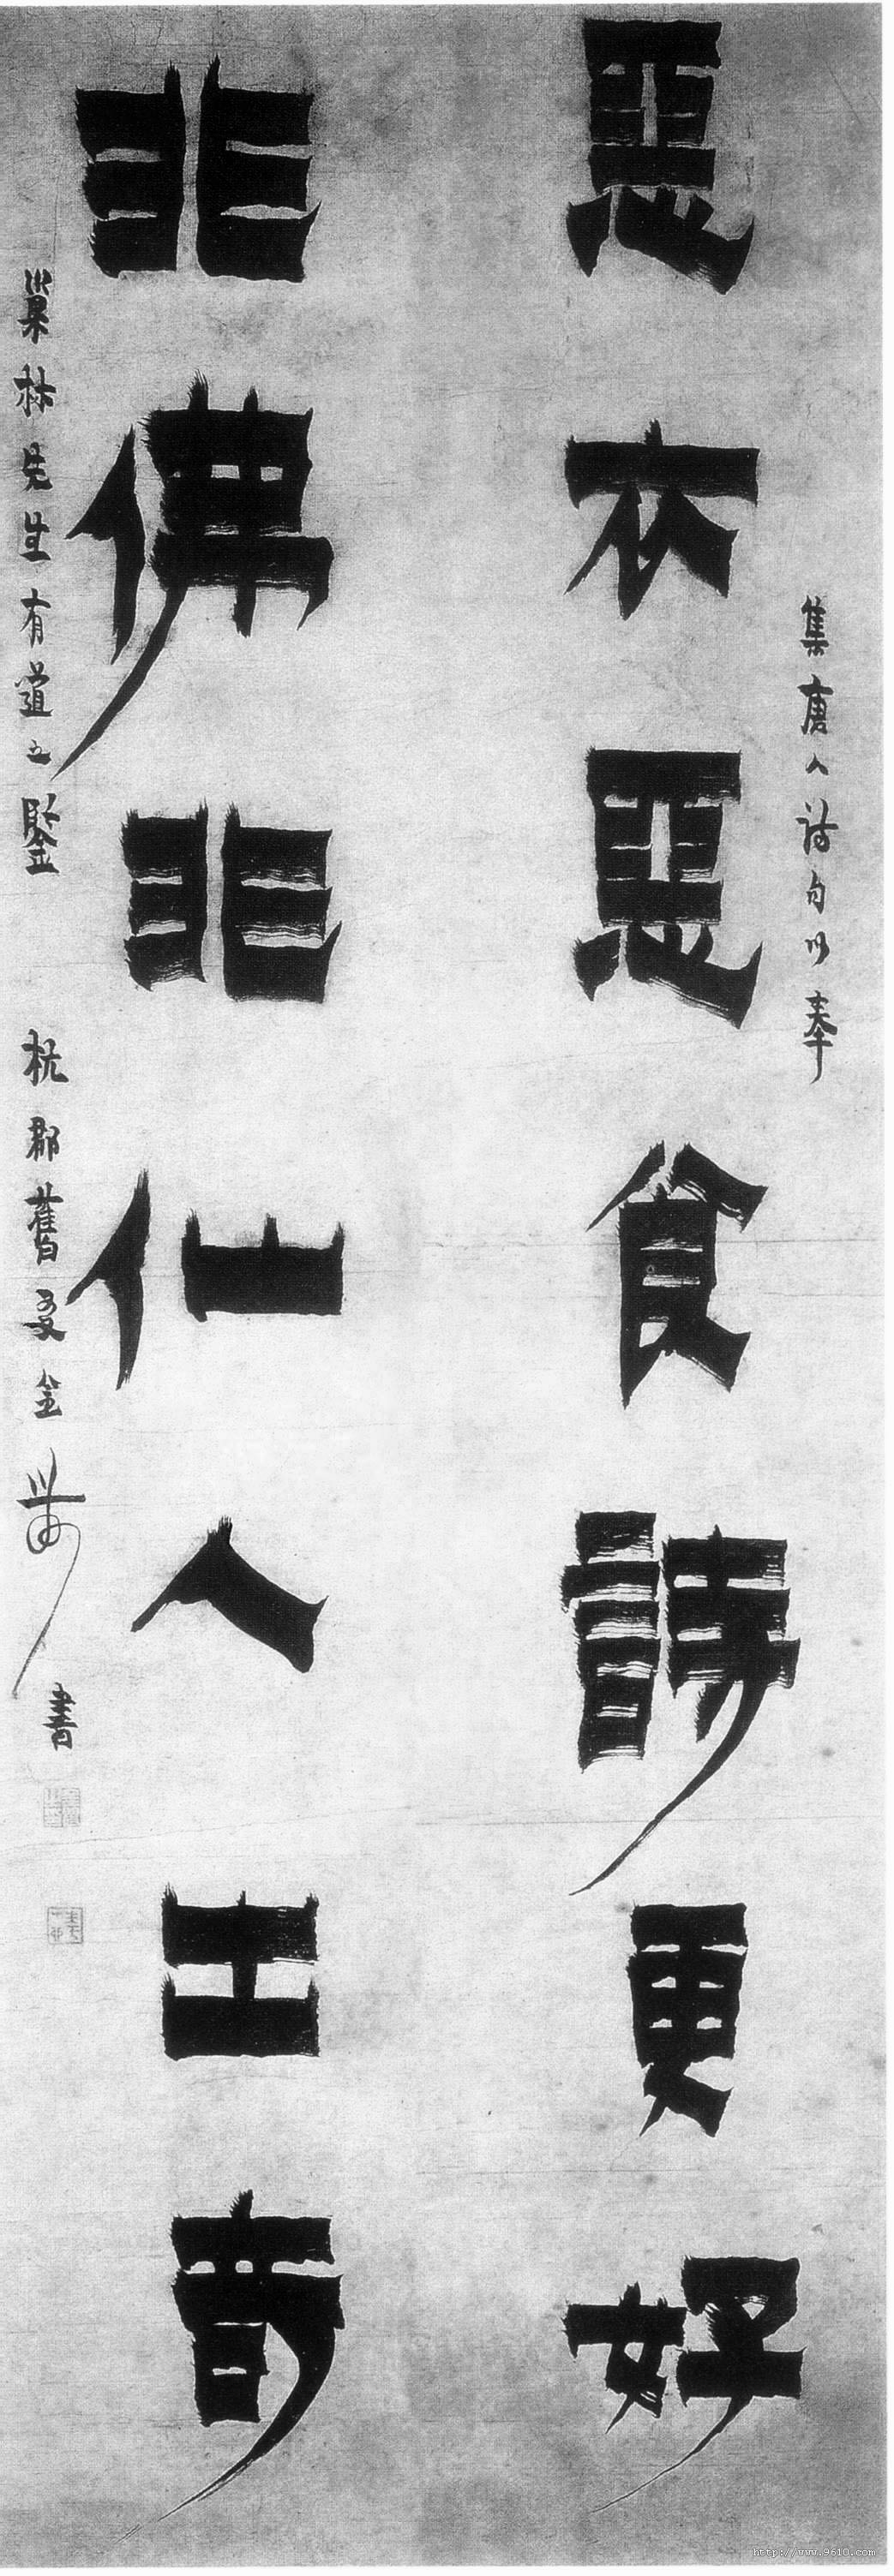 集唐人詩句以奉
惡衣惡食詩更好
非佛非仙人出奇
巢林先生有道之鑒 杭郡舊友金農書
http://www.9610.com